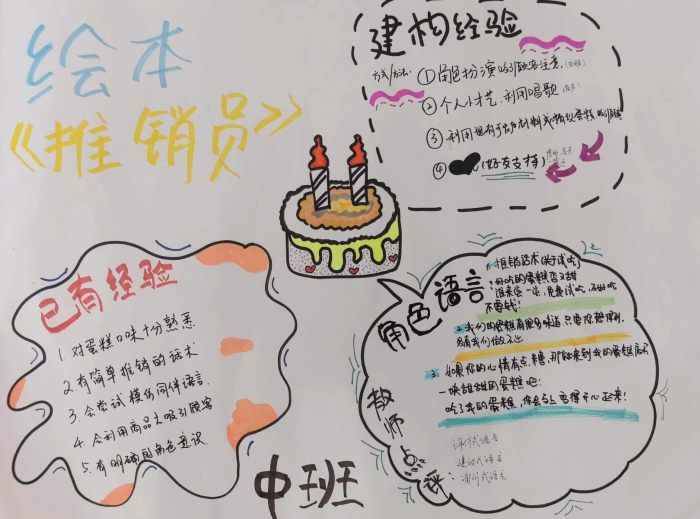 绘本
《推销员》
建构经验
方式/方法: ①角色扮演 吸引顾客注意.
②个人才艺.利用唱歌
③利用现有 材料 蛋糕
④ (好友支持)
已有经验
1. 对蛋糕口味十分熟悉
2. 有简单推销的话术
3. 会尝试模仿同伴语言.
4. 会利用商品去吸引顾客
5. 有明确的角色意识.
角色语言:
1. 推销话术(关于试吃)
:好吃的蛋糕 又甜
谁来尝一尝, 免费试吃,不好吃
不要钱!
2. 我们的蛋糕有很多味道,只要你想得到,
没有我们做不出
3. 如果你的心情有点糟,那就来到我的蛋糕店买
一块甜甜的蛋糕吧!
吃了我的蛋糕,你会马上变得开心起来!
教师点评:
建议式语言
询问式语言
中班